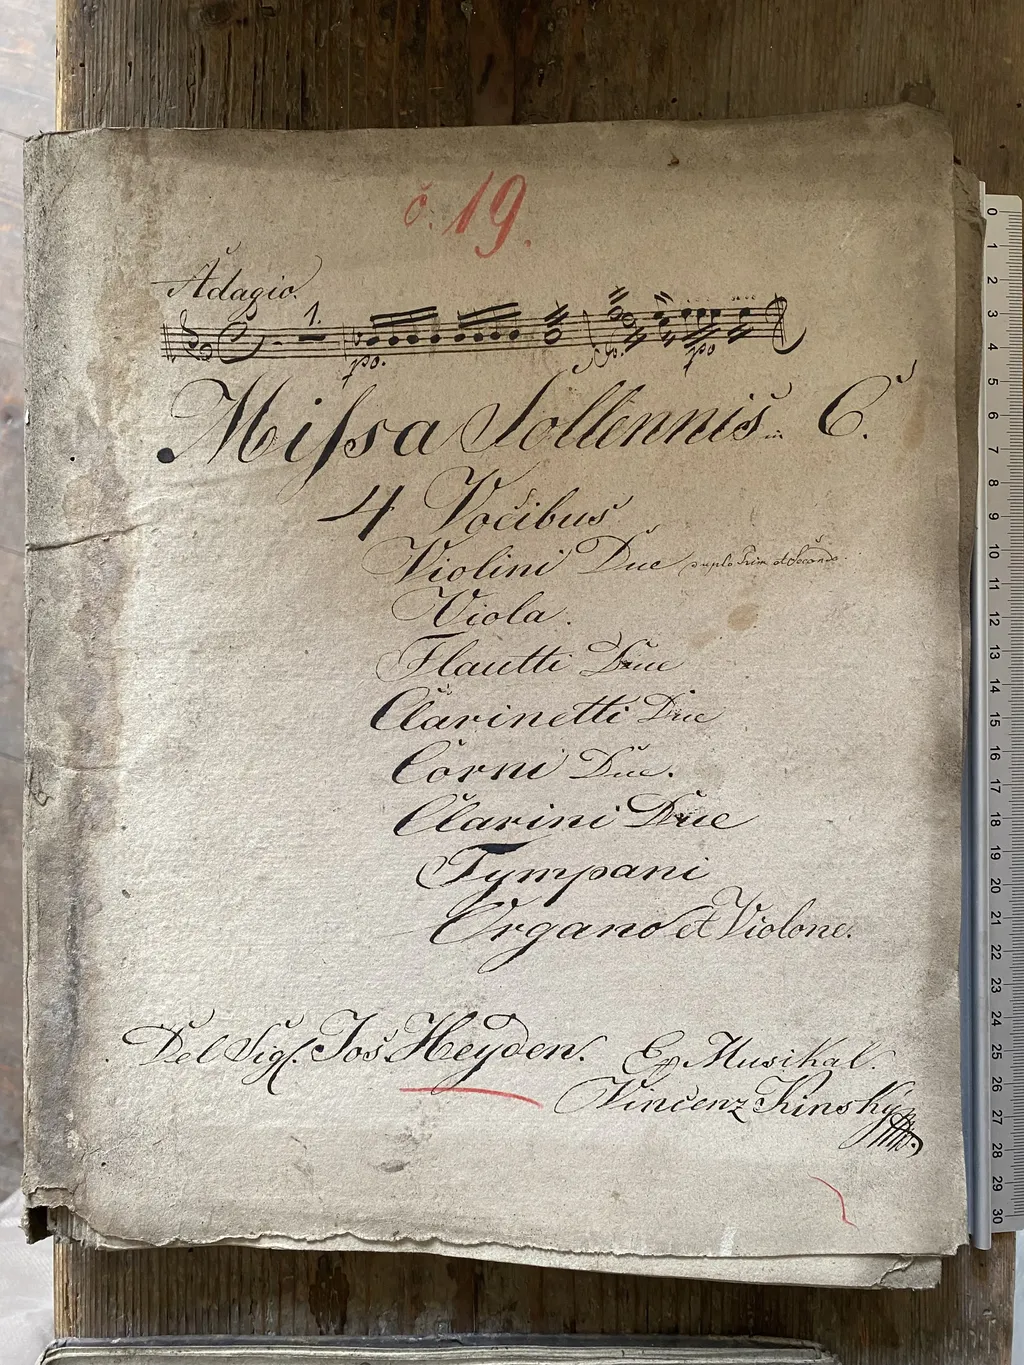 č. 19.
Adagio.
1.
po. po
Missa Sollennis in C.
4 Vocibus
Violini Due duplo Prim et Secondo.
Viola.
Flautti Due
Clarinetti Due
Corni Due.
Clarini Due
Tympani
Organo et Violone.
Del Sigl. Jos. Heyden. Ex Musikal.
Vincenz Kinsky
0 1 2 3 4 5 6 7 8 9 10 11 12 13 14 15 16 17 18 19 20 21 22 23 24 25 26 27 28 29 30